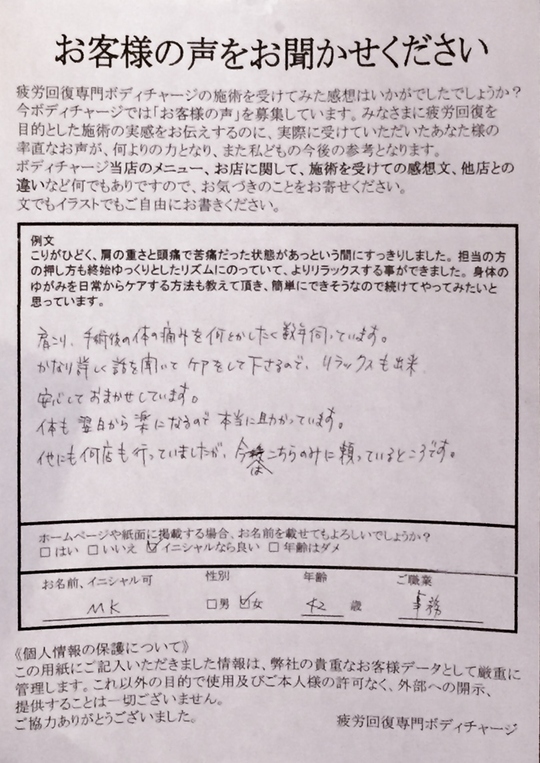 お客様の声をお聞かせください
疲労回復専門ボディチャージの施術を受けてみた感想はいかがでしたでしょうか？
今ボディチャージでは「お客様の声」を募集しています。みなさまに疲労回復を
目的とした施術の実感をお伝えするのに、実際に受けていただいたあなた様の
率直なお声が、何よりの力となり、また私どもの今後の参考となります。
ボディチャージ当店のメニュー、お店に関して、施術を受けての感想文、他店との
違いなど何でもありですので、お気づきのことをお寄せください。
文でもイラストでもご自由にお書きください。
例文
こりがひどく、肩の重さと頭痛で苦痛だった状態があっという間にすっきりしました。担当の方
の押し方も終始ゆっくりとしたリズムにのっていて、よりリラックスする事ができました。身体の
ゆがみを日常からケアする方法も教えて頂き、簡単にできそうなので続けてやってみたいと
思っています。
肩こり、手術後の体の痛みを何とかしたく数年伺っています。
かなり詳しく話を聞いてケアをして下さるので、リラックスも出来
安心しておまかせしています。
体も翌日から楽になるので本当に助かっています。
他にも何店も行っていましたが、今はこちらのみに頼っているところです。
ホームページや紙面に掲載する場合、お名前を載せてもよろしいでしょうか？
□はい □いいえ ☑イニシャルなら良い □年齢はダメ
お名前、イニシャル可 性別 年齢 ご職業
MK □男 ☑女 42 歳 事務
《個人情報の保護について》
この用紙にご記入いただきました情報は、弊社の貴重なお客様データとして厳重に
管理します。これ以外の目的で使用及びご本人様の許可なく、外部への開示、
提供することは一切ございません。
ご協力ありがとうございました。
疲労回復専門ボディチャージ